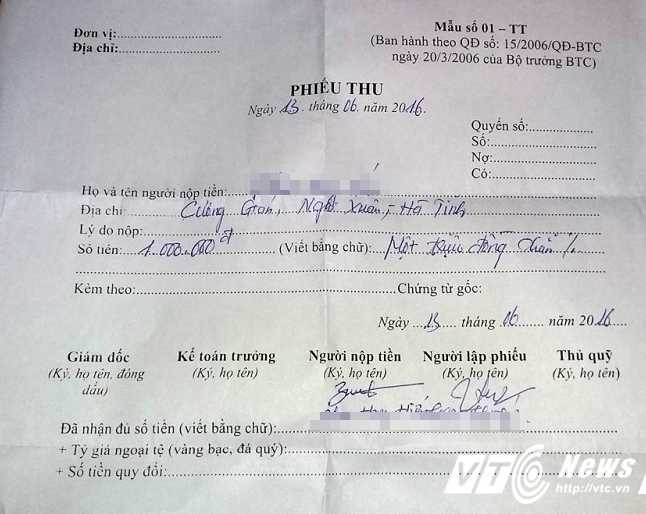 Đơn vị:
Địa chỉ:
Mẫu số 01 – TT
(Ban hành theo QĐ số: 15/2006/QĐ-BTC
ngày 20/3/2006 của Bộ trưởng BTC)
PHIẾU THU
Ngày 13 tháng 06 năm 2016.
Quyển số:
Số:
Nợ:
Có:
Họ và tên người nộp tiền:
Địa chỉ Cương Gián, Nghi Xuân, Hà Tĩnh
Lý do nộp:
Số tiền: 1.000.000đ (Viết bằng chữ): Một triệu đồng chẵn /.
Kèm theo: Chứng từ gốc:
Ngày 13 tháng 06 năm 2016
Giám đốc Kế toán trưởng Người nộp tiền Người lập phiếu Thủ quỹ
(Ký, họ tên, đóng dấu) (Ký, họ tên) (Ký, họ tên) (Ký, họ tên) (Ký, họ tên)
Đã nhận đủ số tiền (viết bằng chữ):
+ Tỷ giá ngoại tệ (vàng bạc, đá quý):
+ Số tiền quy đổi:
VTC News
http://vtc.vn